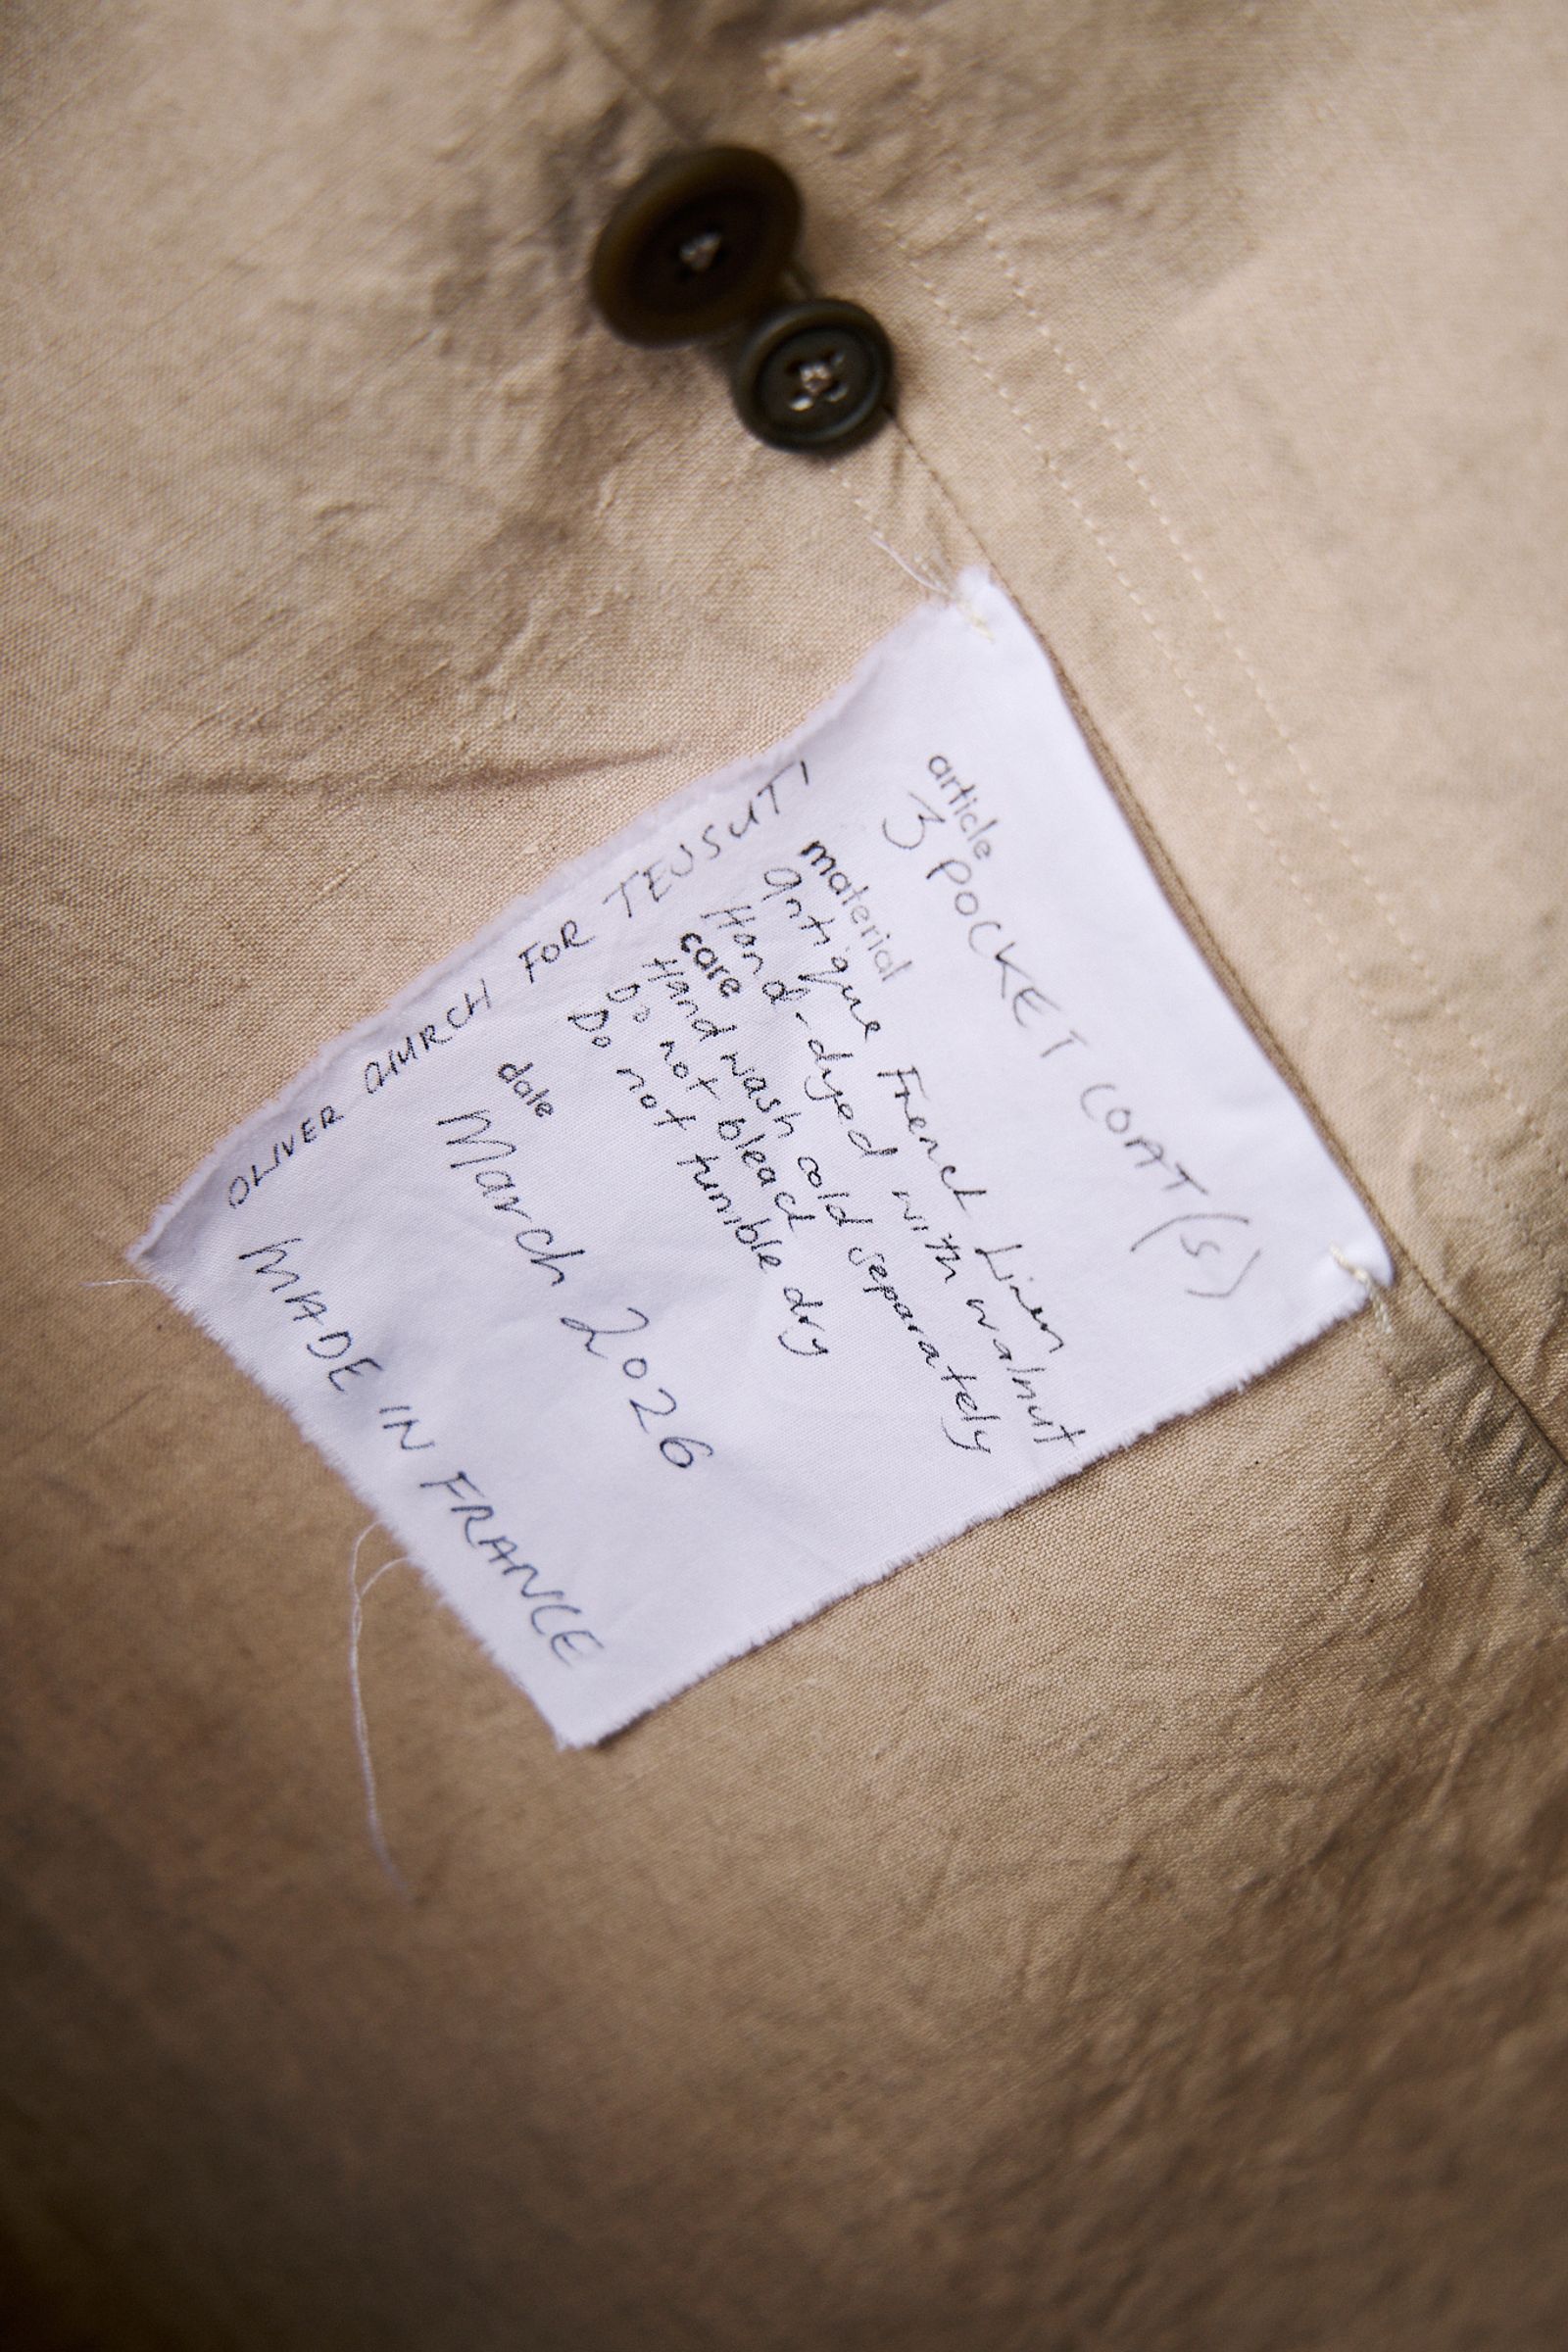 article
3 POCKET COAT (S)
material
Antique French Linen
Hand-dyed with walnut
care
Hand wash cold separately
Do not bleach
Do not tumble dry
date
March 2026
MADE IN FRANCE
OLIVER CHURCH FOR TESSUTI